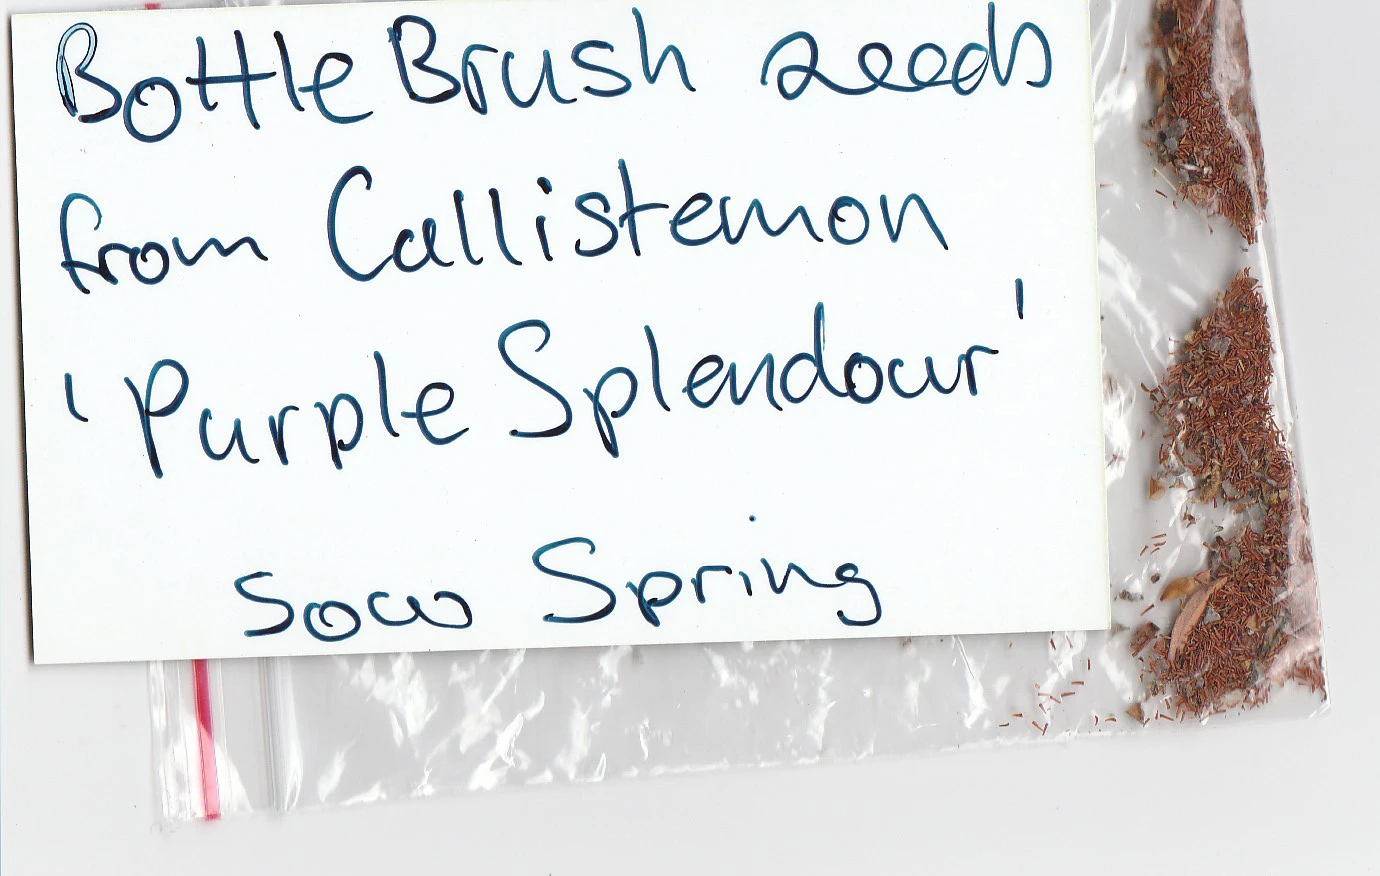 BottleBrush seeds
from Callistemon
'Purple Splendour'
Sow Spring